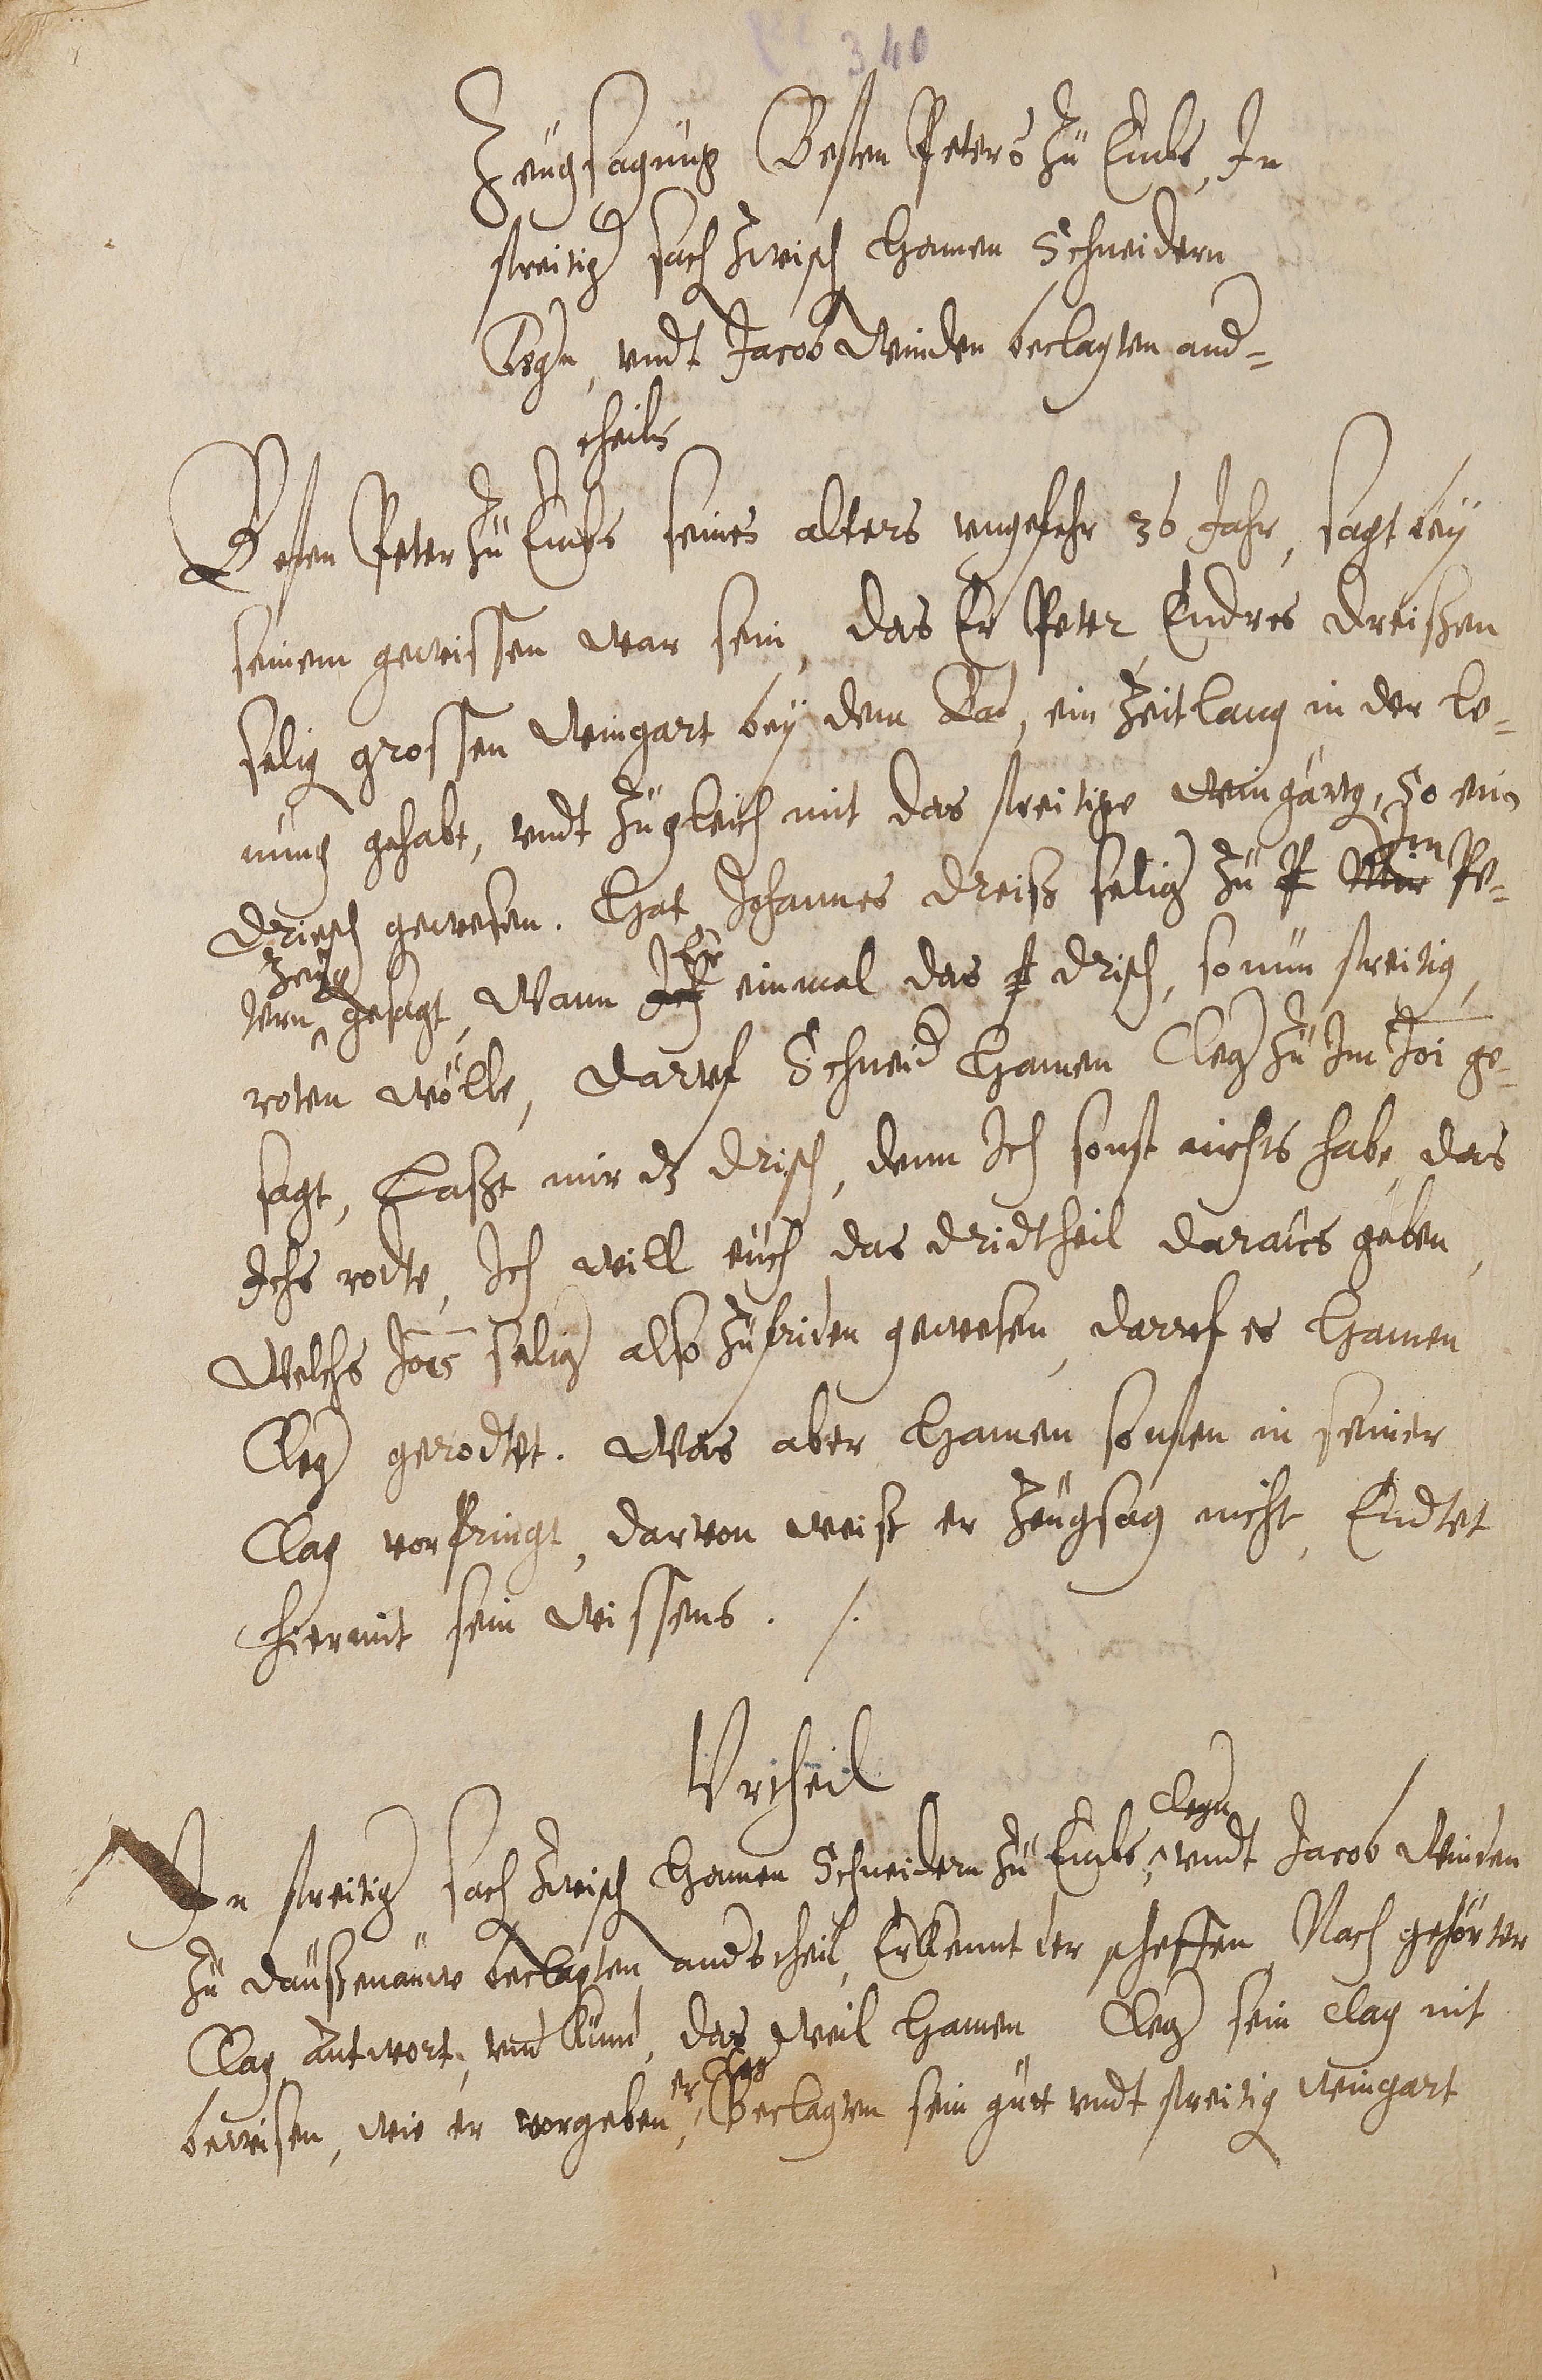 340
Zeugsagung Besten Peters zu Embs, In
streitig sach zwisch Hamen Schneidern
Clegn, vndt Jacob Weinden beclagten and=
theils
Besten Peter zu Embs seines alters vngefehr 36 Jahr, sagt bey
seinem gewissen war sein, das Er Peter Endres dreißen
selig grossen Weingart bey dem Bad, ein Zeitlang in der le=
nung gehabt, vndt zugleich mit das streitige weingartg, So ein
Driesch gewesen. Hat Johannes dreiß selig zu P Mir Im Pe=
tern Zeug gesagt, Wann Ich Er einmal das st drisch, so nun streitig,
roten wölle, daruf Schneid Hamen Cleg zu Im Joi ge=
sagt, Laßt mir dz drisch, denn Ich sonst nichts habe, das
Ichs rodte, Ich will euch das dridtheil daraus geben,
Welchs Jois selig also zufriden gewesen, daruf es Hamen
Cleg gerodtet. Was aber Hamen sonsten in seiner
Clag vorbringt, darvon weist er Zeugsag nicht, Endtet
hiermit sein wissens. ./.
Vrtheil
In streitig sach zwisch Hamen Schneidern zu Embs, Clegn vndt Jacob Weinden
zu daußenauw beclagten andstheil, Erkennt der scheffen, Nach gehörter
Clag, Antwort, vnd kund, das weil Hamen Cleg sein clag nit
bewisen, wie er vorgeben, er Beclagten sein gutt vndt streitig weingart